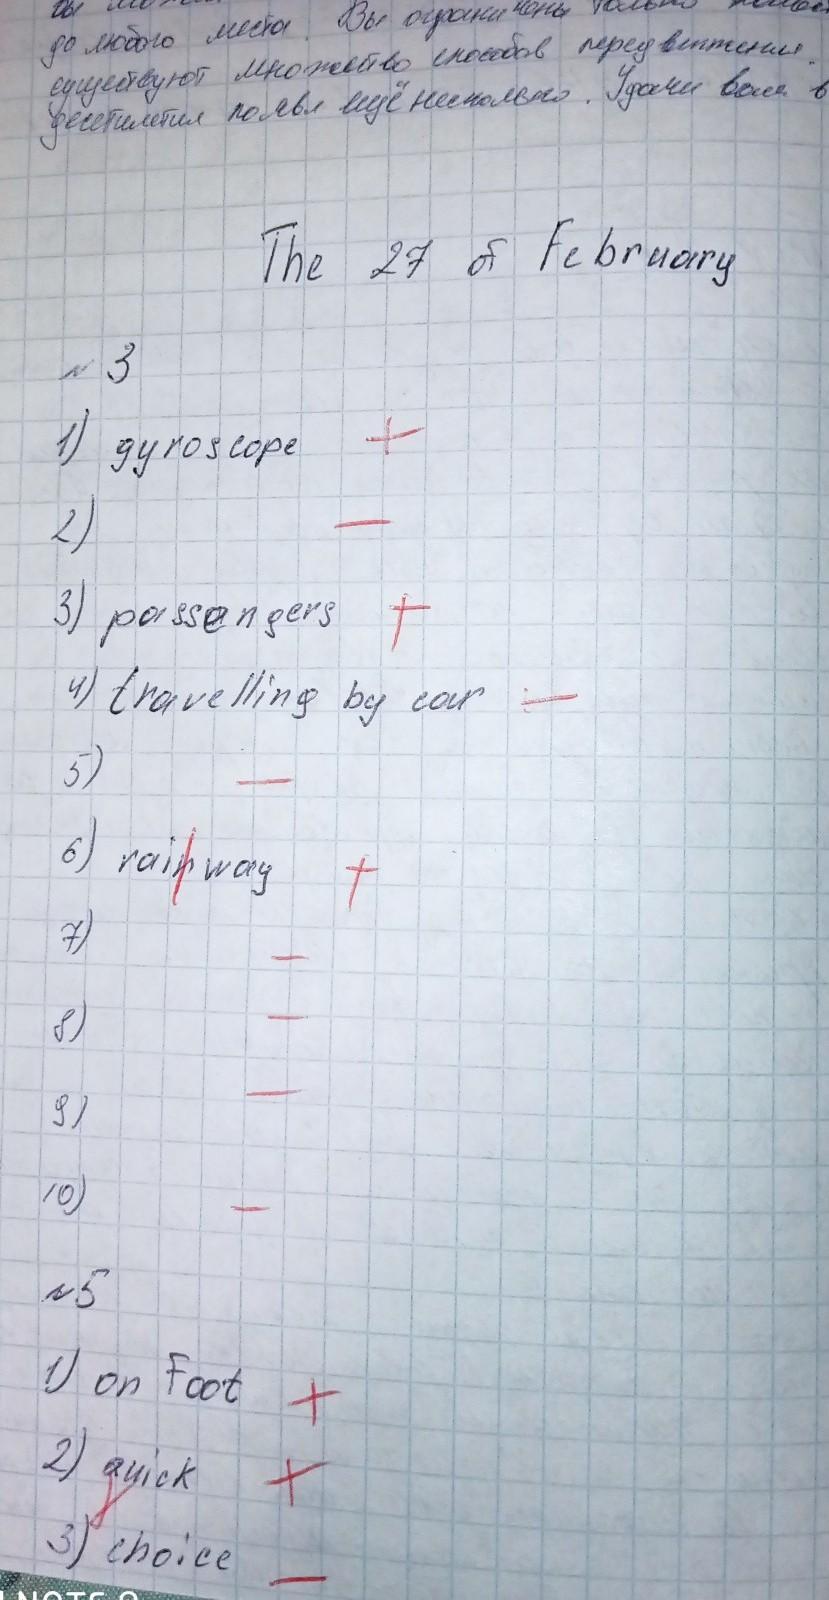 вы можем
до любого места. Вы ограничены только
существуют множество способов передвижения.
десетилетия появл ещё несколько. Удачи вам в
The 27 of February
№3
1) gyroscope +
2) —
3) passangers +
4) travelling by car —
5) —
6) rainway +
7) —
8) —
9) —
10) —
№5
1) on Foot +
2) quick +
3) choice —